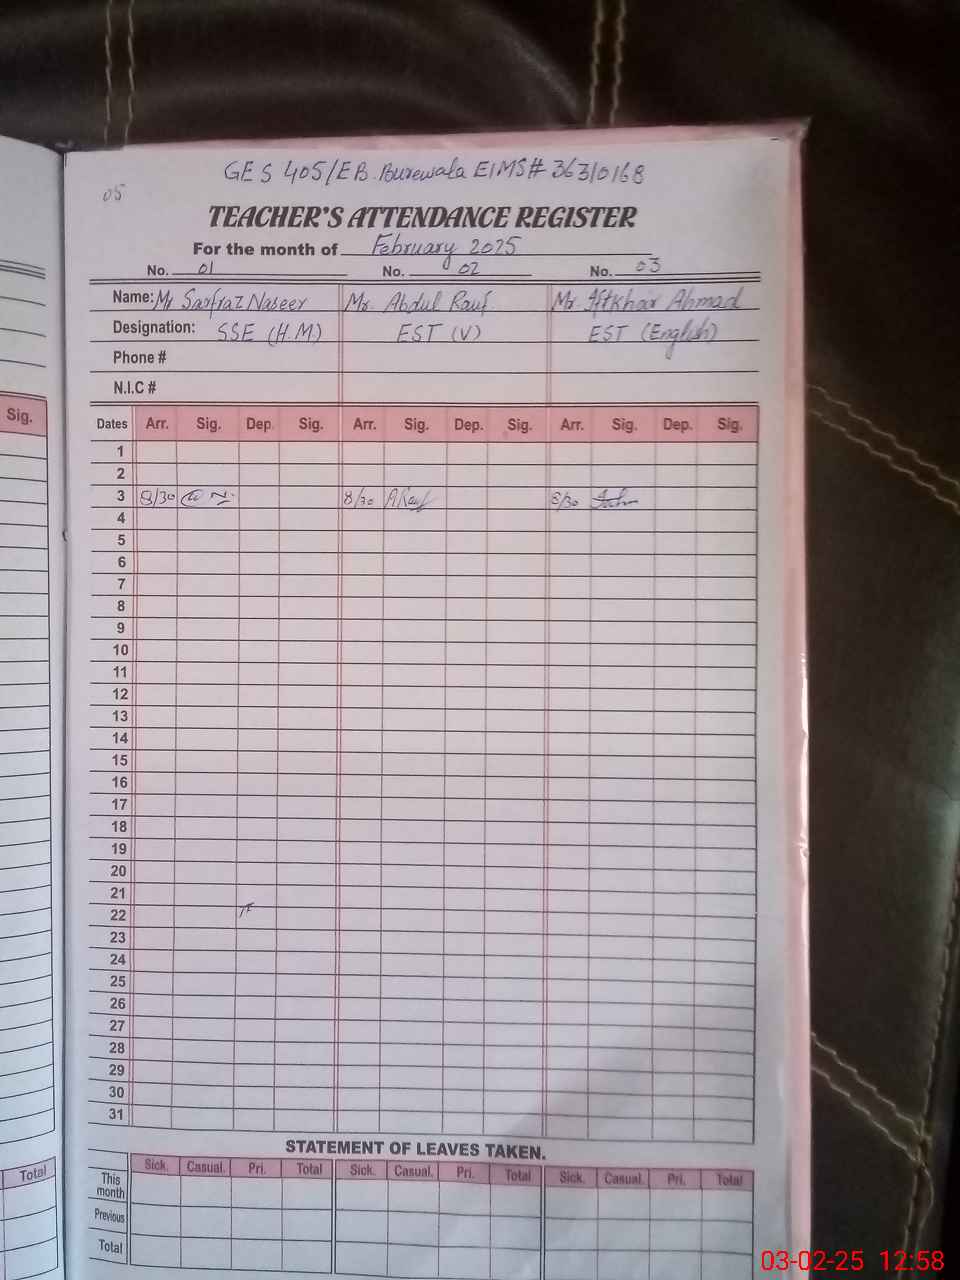 GES 405/EB. Burewala EIMS# 36310168
05
TEACHER'S ATTENDANCE REGISTER
For the month of February 2025
No. 01 No. 02 No. 03
Name: Mr Sarfraz Naseer Mr. Abdul Rauf Mr. Iftkhar Ahmad
Designation: SSE (H.M) EST (V) EST (English)
Phone #
N.I.C #
Sig.
Dates Arr. Sig. Dep. Sig. Arr. Sig. Dep. Sig. Arr. Sig. Dep. Sig.
1
2
3 8/30 8/30 ARauf 8/30
4
5
6
7
8
9
10
11
12
13
14
15
16
17
18
19
20
21
22
23
24
25
26
27
28
29
30
31
STATEMENT OF LEAVES TAKEN.
Total
Sick. Casual. Pri. Total Sick. Casual. Pri. Total Sick. Casual. Pri. Total
This
month
Previous
Total
03-02-25 12:58